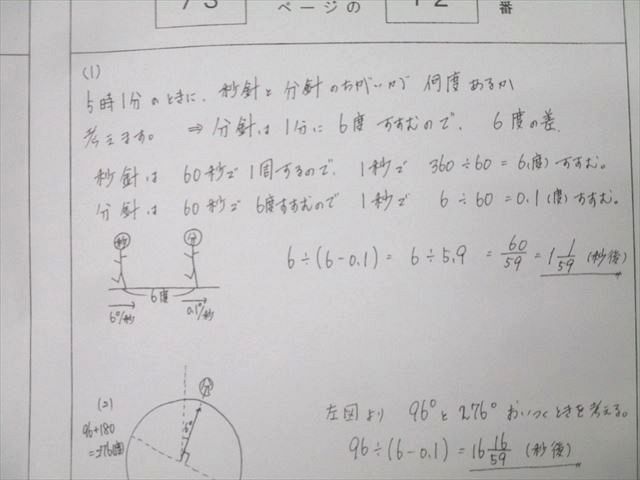 ページの
番
(1)
5時1分のときに、秒針と分針のちがいが何度あるか
考えます。 ⇒ 分針は1分に6度すすむので、6度の差
秒針は 60秒で1周するので、1秒で 360÷60=6(度)すすむ。
分針は 60秒で6度すすむので 1秒で 6÷60=0.1(度)すすむ。
秒 分
6÷(6-0.1) = 6÷5.9 = 60/59 = 1 1/59 (秒後)
6度
6°/秒 0.1°/秒
(2)
分
6°
96+180
=276(度)
左図より 96°と276° おいつくときを考える。
96÷(6-0.1) = 16 16/59 (秒後)